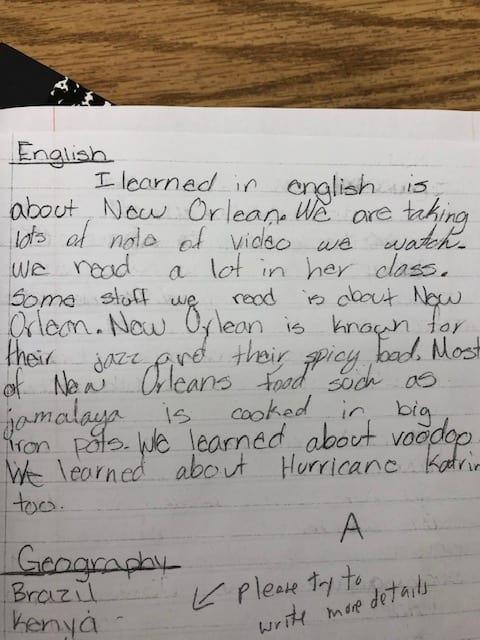 English
I learned in english is
about New Orlean. We are taking
lots of note of video we watch.
we read a lot in her class.
Some stuff we read is about New
Orlean. New Orlean is known for
their jazz and their spicy food. Most
of New Orleans food such as
jamalaya is cooked in big
iron pots. We learned about voodoo
We learned about Hurricane Katrin
too.
A
Geography
Brazil
Kenya
please try to
write more details